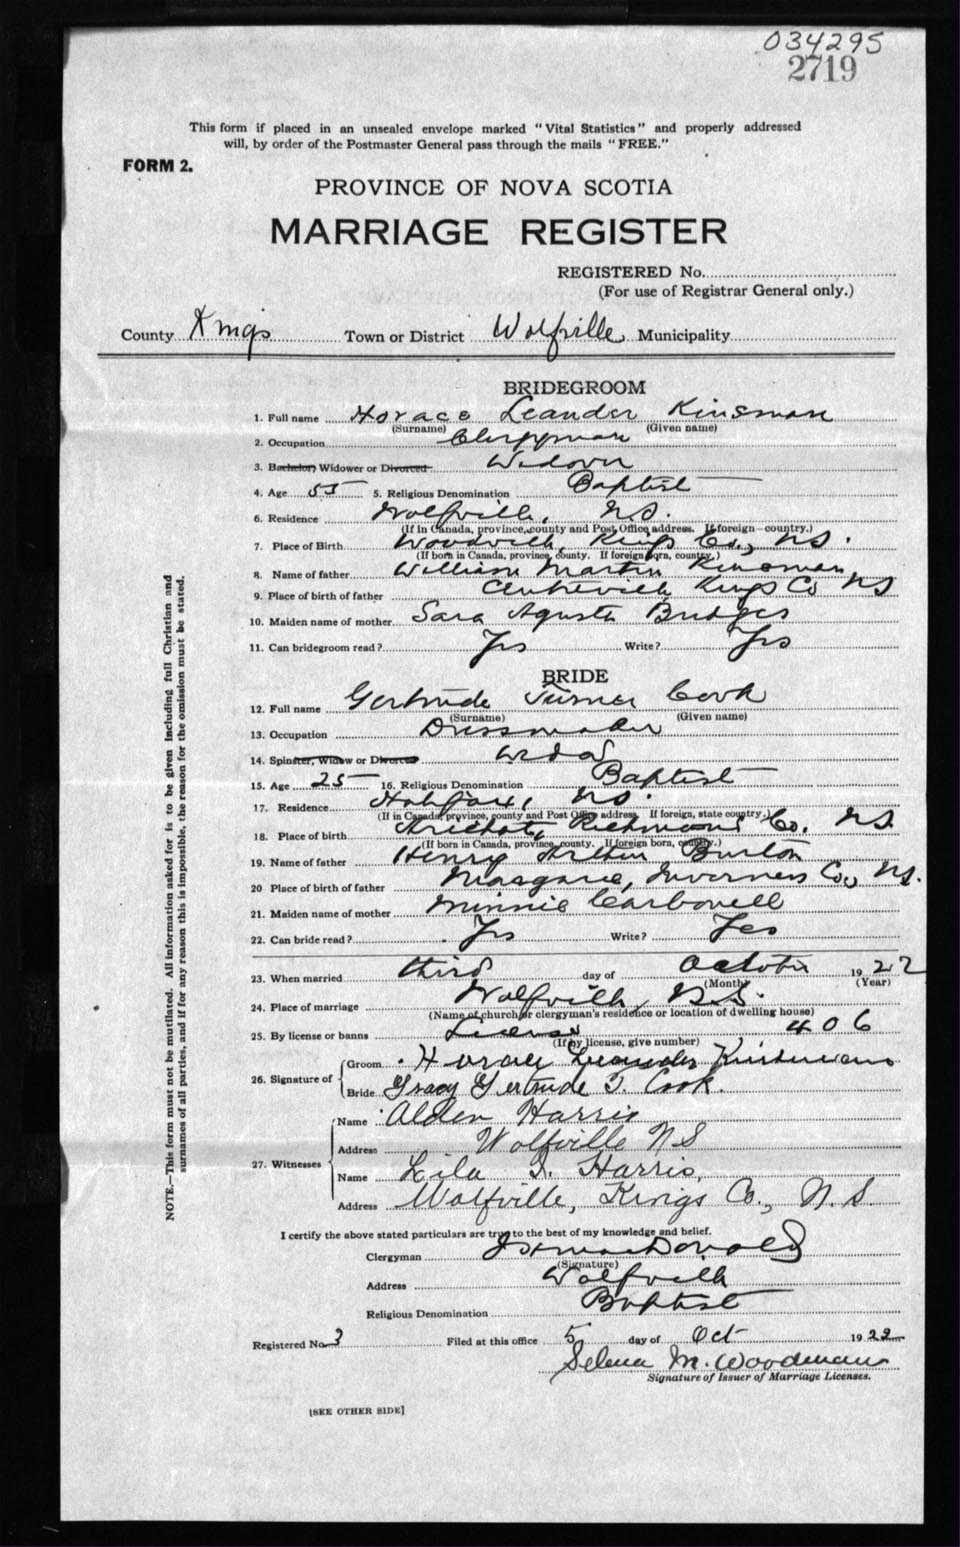 034295
2719
This form if placed in an unsealed envelope marked "Vital Statistics" and properly addressed
will, by order of the Postmaster General pass through the mails "FREE."
FORM 2.
PROVINCE OF NOVA SCOTIA
MARRIAGE REGISTER
REGISTERED No.
(For use of Registrar General only.)
County Kings Town or District Wolfville Municipality
BRIDEGROOM
1. Full name Horace Leander Kinsman
(Surname) (Given name)
2. Occupation Clergyman
3. Bachelor, Widower or Divorced Widower
4. Age 55 5. Religious Denomination Baptist
6. Residence Wolfville, N.S.
(If in Canada, province, county and Post Office address. If foreign—country.)
7. Place of Birth Woodville, Kings Co., N.S.
(If born in Canada, province, county. If foreign born, country.)
8. Name of father William Martin Kinsman
9. Place of birth of father Centreville Kings Co NS
10. Maiden name of mother Sara Agusta Bridges
11. Can bridegroom read? Yes Write? Yes
BRIDE
12. Full name Gertrude Turner Cook
(Surname) (Given name)
13. Occupation Dressmaker
14. Spinster, Widow or Divorced Wid
15. Age 25 16. Religious Denomination Baptist
17. Residence Halifax, N.S.
(If in Canada, province, county and Post Office address. If foreign, state country.)
18. Place of birth Arichat, Richmond Co. N.S.
(If born in Canada, province, county. If foreign born, country.)
19. Name of father Henry Arthur Burton
20 Place of birth of father Margaree, Inverness Co., N.S.
21. Maiden name of mother Minnie Carbonell
22. Can bride read? Yes Write? Yes
23. When married third day of October 1922
(Month) (Year)
24. Place of marriage Wolfville, N.S.
(Name of church or clergyman's residence or location of dwelling house)
25. By license or banns License 406
(If by license, give number)
26. Signature of Groom Horace Leander Kinsman
Bride Gracy Gertrude T. Cook.
27. Witnesses Name Alden Harris
Address Wolfville N S
Name Lila Harris,
Address Wolfville, Kings Co., N. S.
I certify the above stated particulars are true to the best of my knowledge and belief.
Clergyman MacDonald
(Signature)
Address Wolfville
Religious Denomination Baptist
Registered No. 3 Filed at this office 5 day of Oct 1922
Selena M. Woodman
Signature of Issuer of Marriage Licenses.
[SEE OTHER SIDE]
NOTE.—This form must not be mutilated. All information asked for is to be given including full Christian and
surnames of all parties, and if for any reason this is impossible, the reason for the omission must be stated.